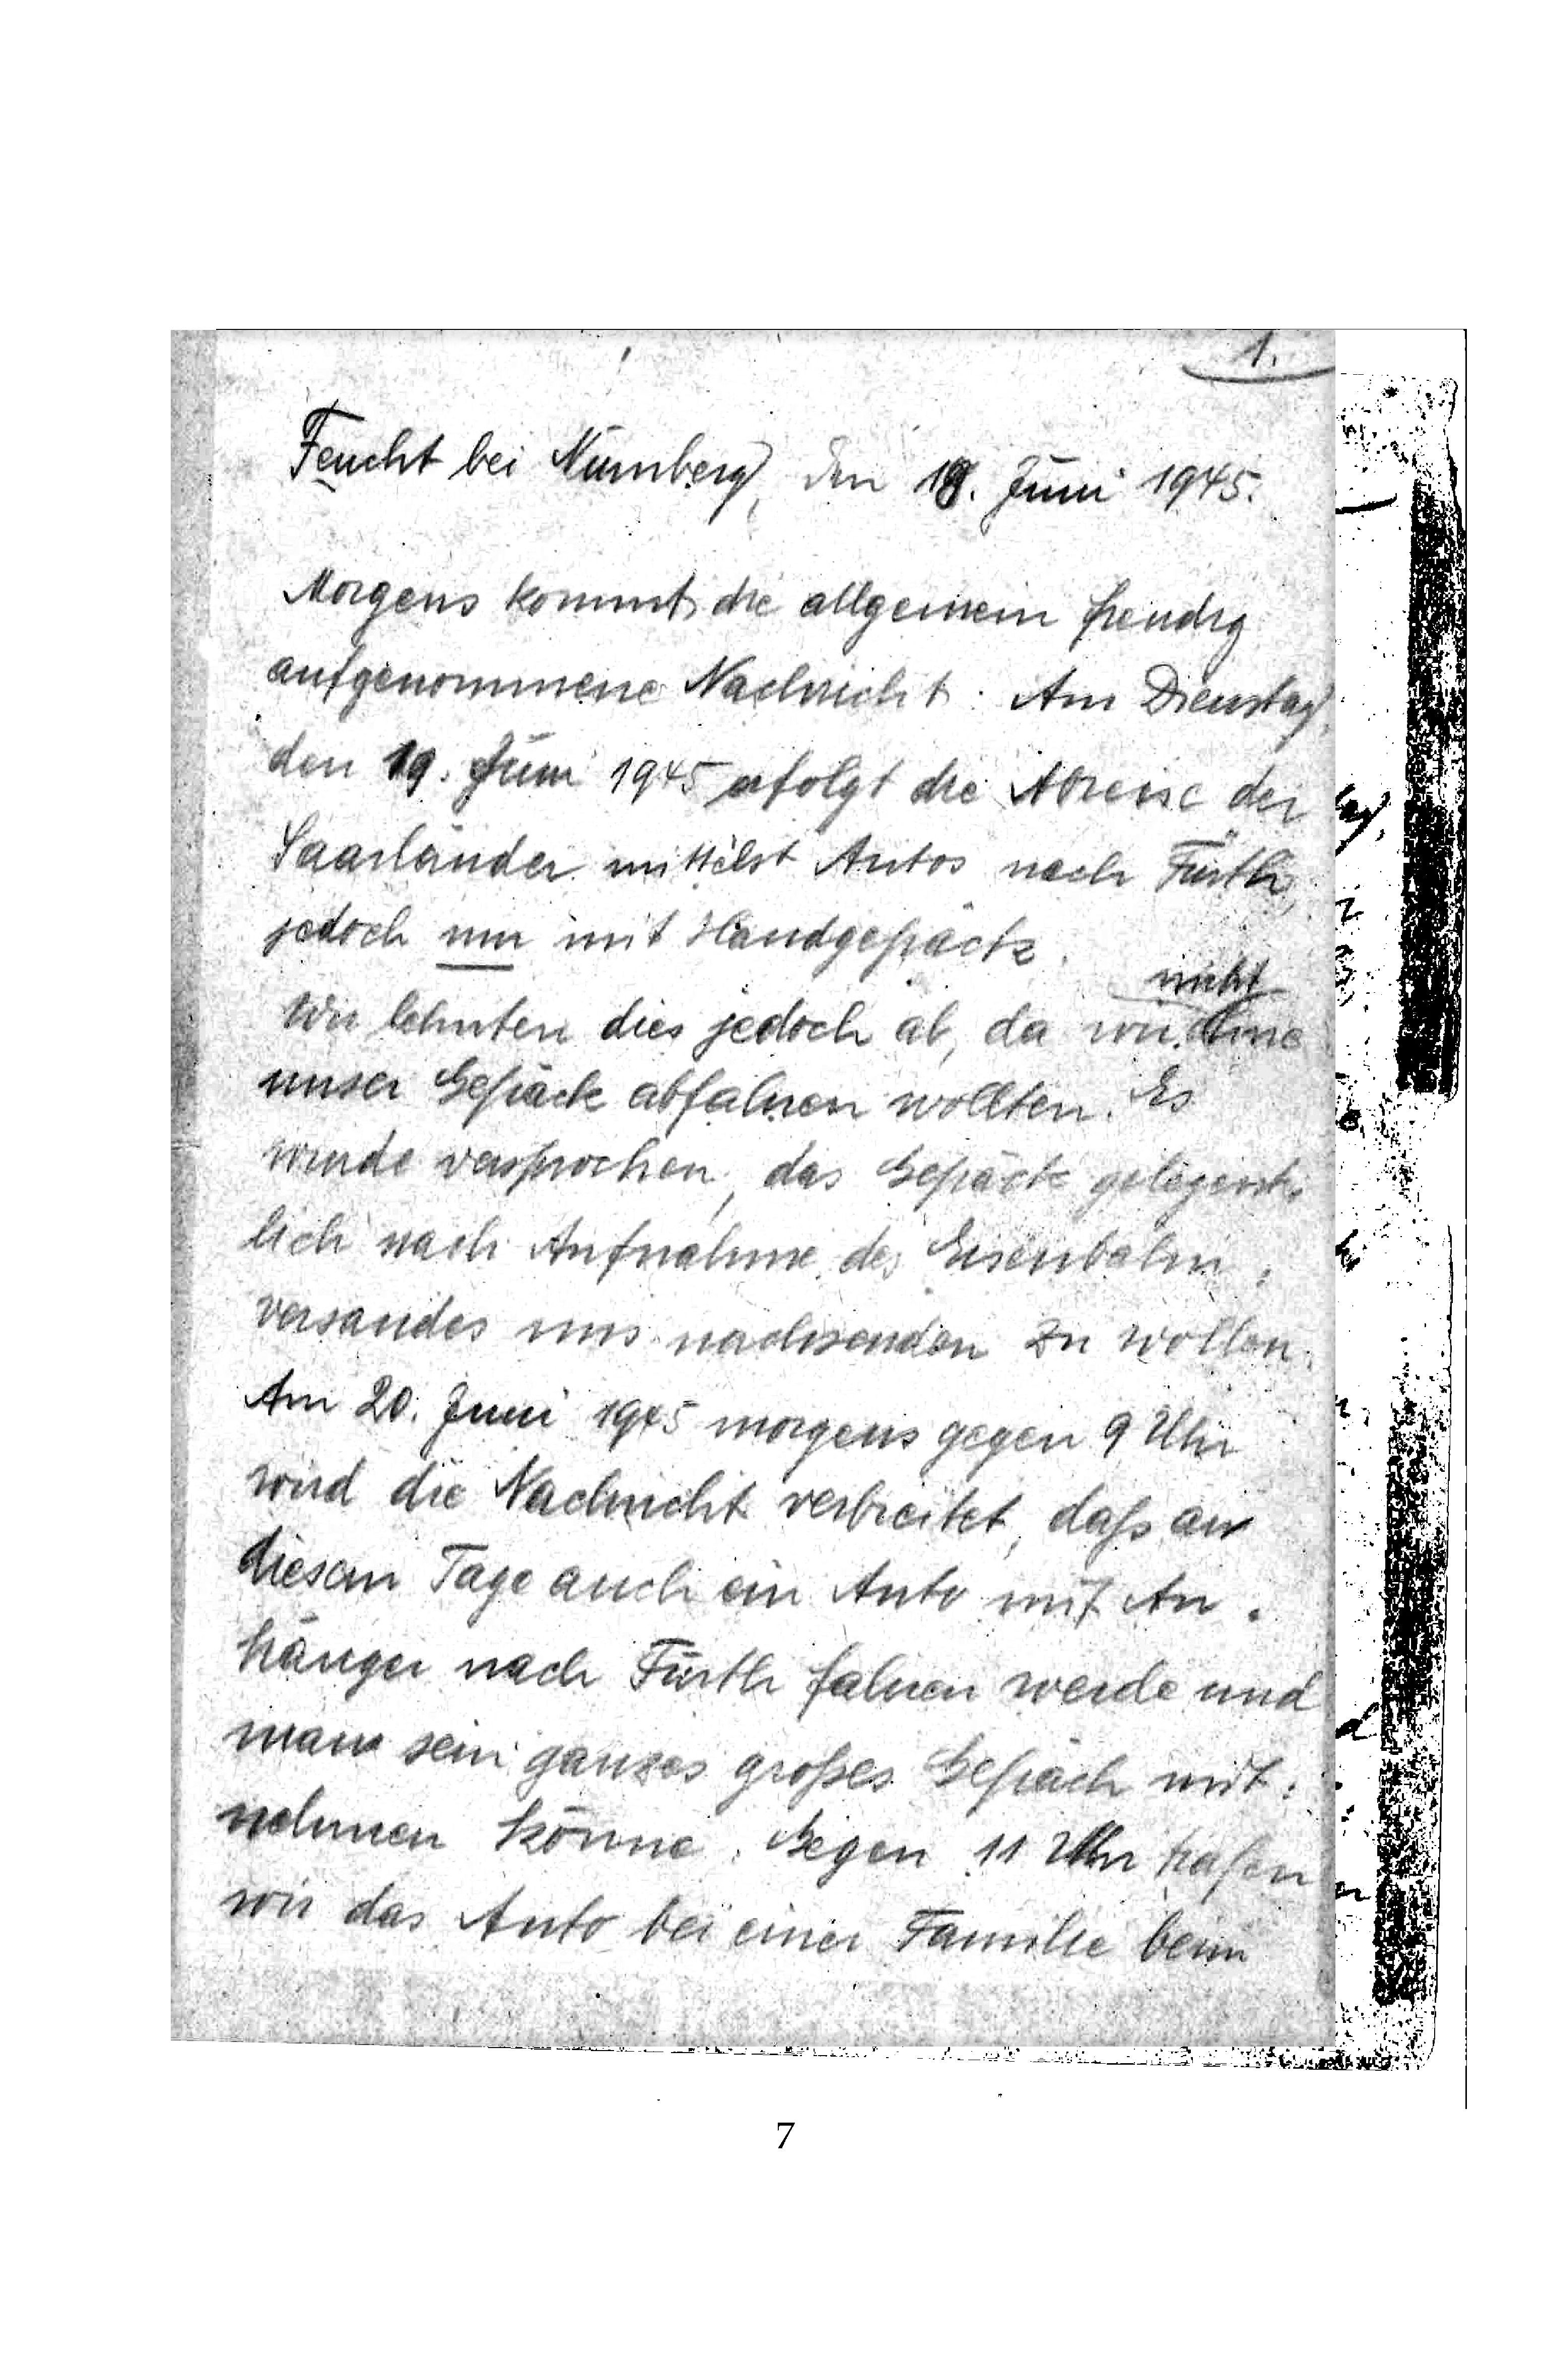 1.
Feucht bei Nürnberg, den 18. Juni 1945.
Morgens kommt die allgemein freudig
aufgenommene Nachricht: Am Dienstag,
den 19. Juni 1945 erfolgt die Abreise der
Saarländer mittelst Autos nach Fürth,
jedoch nur mit Handgepäck.
nicht
Wir lehnten dies jedoch ab, da wir ohne
unser Gepäck abfahren wollten. Es
wurde versprochen, das Gepäck gelegent-
lich nach Aufnahme des Eisenbahn-
versandes uns nachsenden zu wollen.
Am 20. Juni 1945 morgens gegen 9 Uhr
wird die Nachricht verbreitet, daß an
diesem Tage auch ein Auto mit An-
hänger nach Fürth fahren werde und
man sein ganzes großes Gepäck mit-
nehmen könne. Gegen 11 Uhr trafen
wir das Auto bei einer Familie beim
7